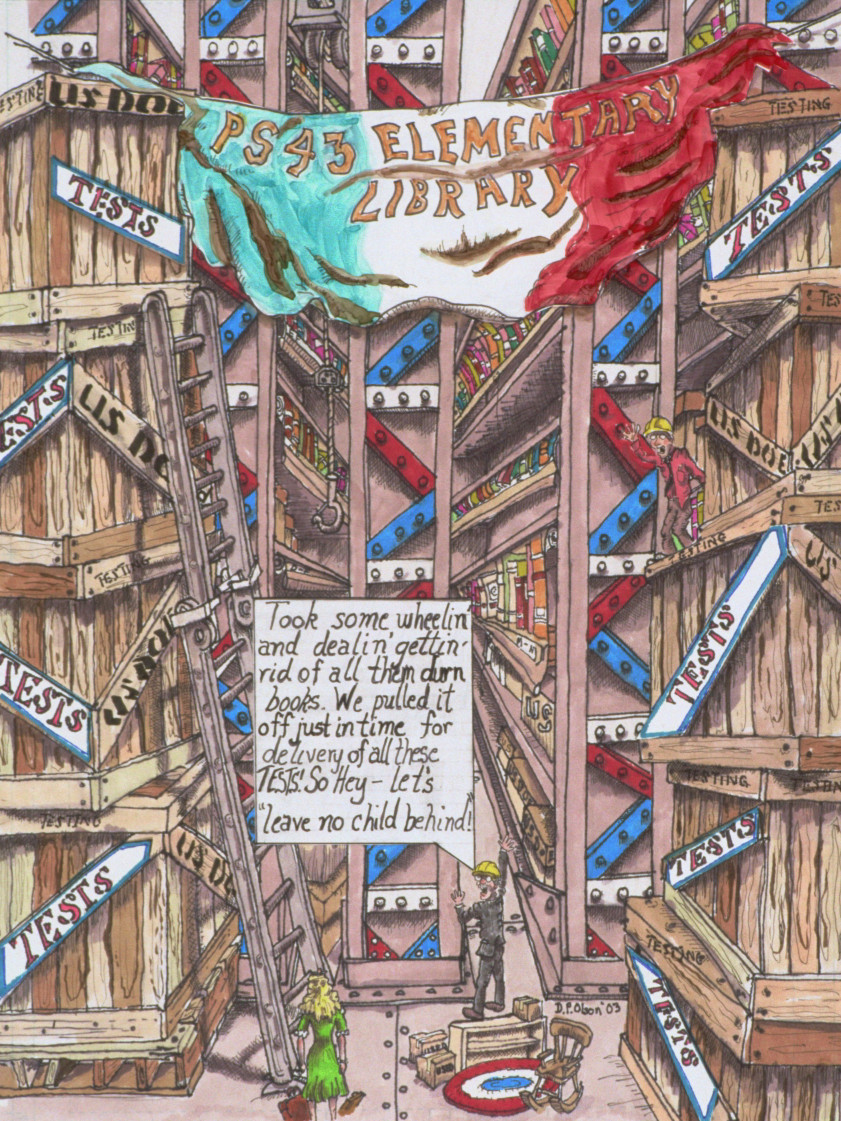 US DOE
TESTING
PS43 ELEMENTARY
LIBRARY
TESTS
TESTS
TESTING
TESTS
US DOE
US DOE
TESTING
TESTING
TESTS
TESTS
TESTING
TESTING
TESTS
TESTS
TESTING
Took some wheelin
and dealin' gettin'
rid of all them durn
books. We pulled it
off just in time for
delivery of all these
TESTS! So Hey – let's
"leave no child behind!
TESTS
TESTING
TESTS
D.P. Olson '03